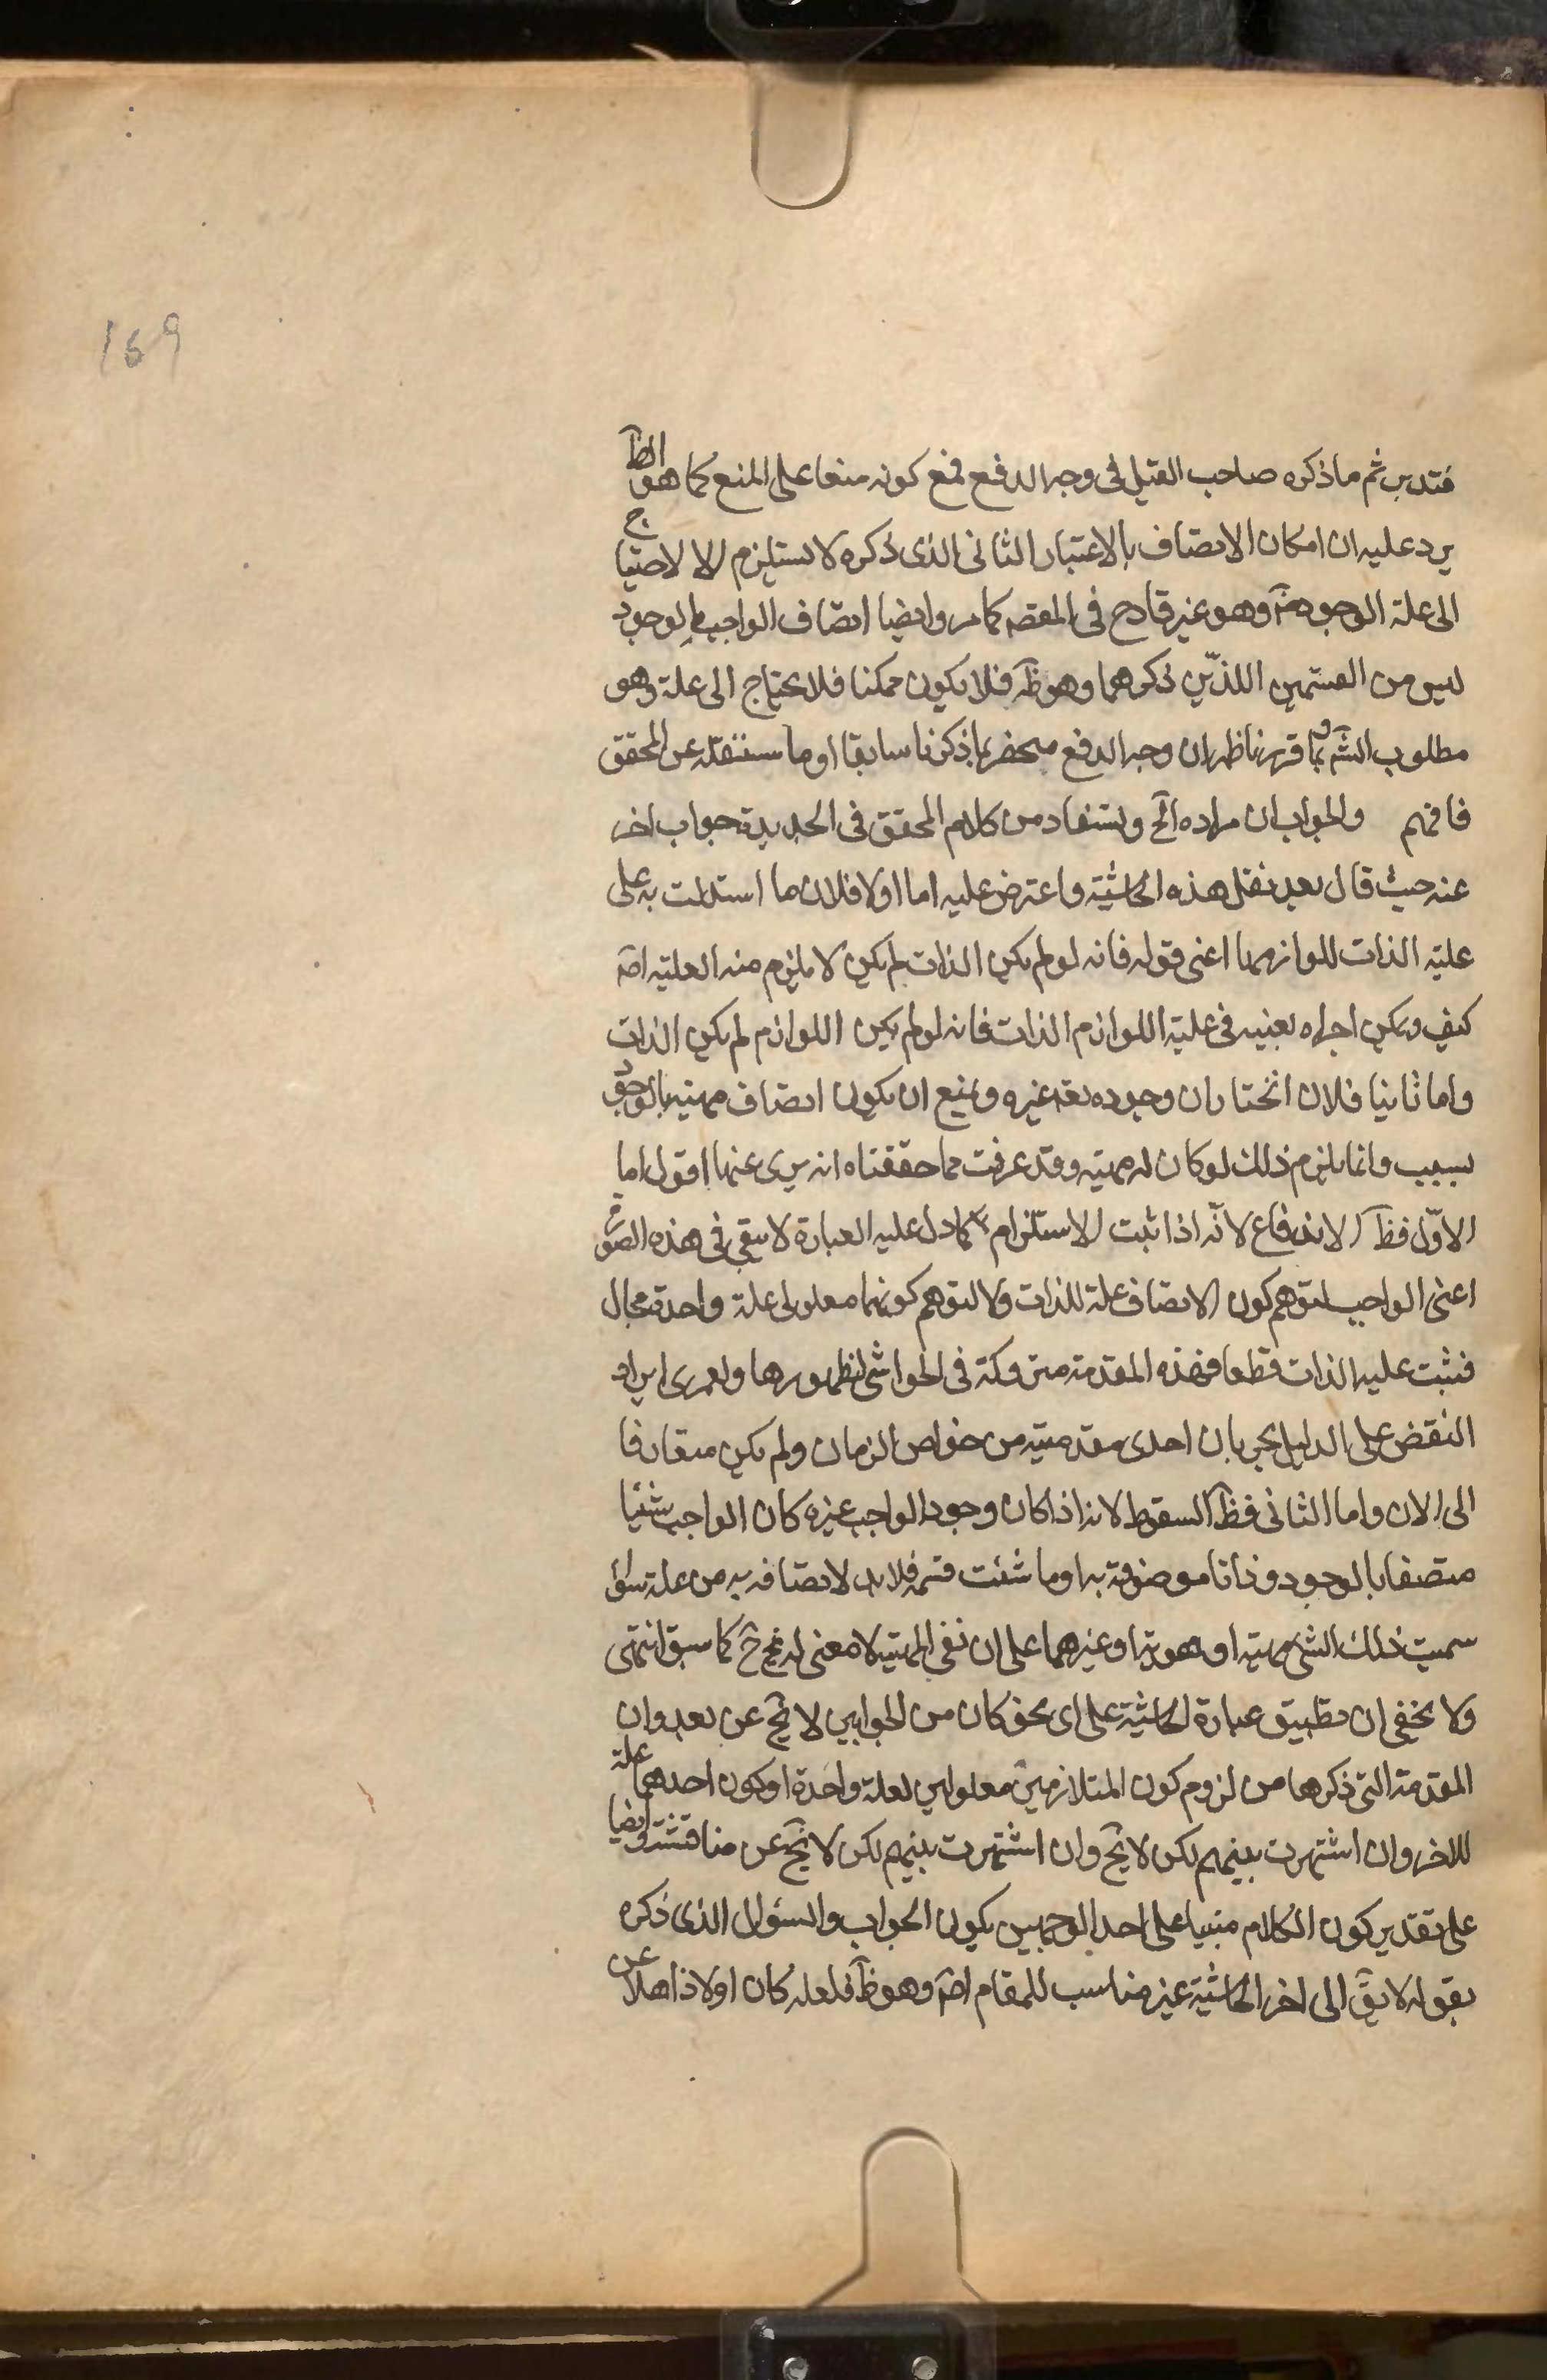 169
فتدبر ثم ما ذكره صاحب القيل فى وجه الدفع فمع كونه منعا على المنع كما هو الظ
يرد عليه ان امكان الاتصاف بالاعتبار الثانى الذى ذكره لا يستلزم الا الاحتياج
الى علة الوجود وهو غير قادح فى المقصد كما مر وايضا اتصاف الواجب بالوجود
ليس من القسمين اللذين ذكرهما وهو ظ فلا يكون ممكنا فلا يحتاج الى علة وهو
مطلوب الش وبما قررنا ظهر ان وجه الدفع منحصر بما ذكرنا سابقا او ما سننقله عن المحقق
فافهم والجواب ان مراده الخ ويستفاد من كلام المحقق فى الجديدة جواب اخر
عنه حيث قال بعد نقل هذه الحاشية واعترض عليه اما اولا فلان ما استدلت به على
علية الذات للوازمها اعنى قوله فانه لو لم يكن الذات لم يكن لا يلزم منه العلية اصلا
كيف ويمكن اجراه بعينه فى علية اللوازم الذات فانه لو لم يكن اللوازم لم يكن الذات
واما ثانيا فلان انختار ان وجوده تعه غيره ونمنع ان يكون اتصاف مهيته بالوجود
بسبب وانما يلزم ذلك لو كان له مهية وقد عرفت مما حققناه انه برى عنها اقول اما
الاول فظ الاندفاع لانه اذا ثبت الاستلزام كما دل عليه العبارة لا يبقى فى هذه الصورة
اعنى الواجب لتوهم كون الاتصاف علة للذات ولا لتوهم كونهما معلولى علة واحدة مجال
فثبت علية الذات قطعا فهذه المقدمة متروكة فى الحواشى لظهورها ولعمرى ايراد
النقض على الدليل بجريان احدى مقدمتيه من خواص الزمان ولم يكن متعارفا
الى الان واما الثانى فظ السقوط لانه اذا كان وجود الواجب غيره كان الواجب شيئا
متصفا بالوجود وذاتا موصوفة به او ما شئت فسمه فلا بد لاتصافه به من علة سواء
سميت ذلك الشئ مهية او هوية او غيرهما على ان نفى المهية لا معنى له ح كما سبق انتهى
ولا يخفى ان تطبيق عبارة الحاشية على اى نحو كان من الجوابين لا يخ عن بعد وان
المقدمة التى ذكرها من لزوم كون المتلازمين معلولين لعلة واحدة او كون احدهما علة
للاخر وان اشتهرت بينهم لكن لا يخ وان اشتهرت بينهم لكن لا يخ عن مناقشة وايضا
على تقدير كون الكلام مبنيا على احد الوجهين يكون الجواب والسئوال الذى ذكره
بقوله لا يق الى اخر الحاشية غير مناسب للمقام اصلا وهو ظ فلعله كان اولا ذاهلا عن